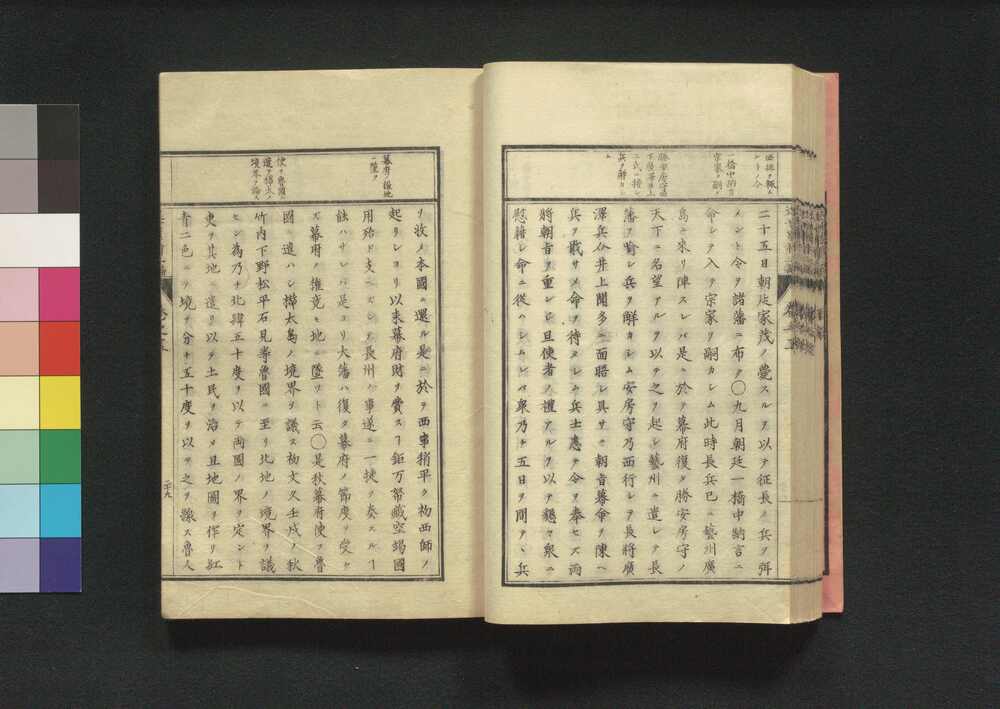 征挑ヲ輟ム
ルノ令
一橋中納言
宗家ヲ嗣
勝安房守藝
州ニ
兵ヲ解カシ
ム
二十五日朝廷家茂ノ薨スルヲ以テ征長ノ兵ヲ弭
メント令ヲ諸藩ニ布ク〇九月朝廷一橋中納言ニ
命シテ入テ宗家ヲ嗣カシム此時長兵已ニ藝州廣
島ニ来リ陣スレバ是ニ於テ幕府復タ勝安房守ノ
天下ニ名望アルヲ以テ之ヲ起シ藝州ニ遣シテ長
藩ヲ喻シ兵ヲ解カシム安房守乃西行シテ長将廣
澤兵仝井上聞多ニ面晤シ具サニ朝旨幕命ヲ陳ヘ
兵ヲ戢サメ命ヲ待タシム兵士應テ令ヲ奉セズ両
将朝旨ヲ重シ且使者ノ禮アルヲ以テ懇々衆ニ
慰藉シ命ニ従ハシムレバ衆乃チ五日ヲ間テヽ兵
幕府ノ権地
ニ墜ツ
使ヲ魯國ニ
遣リ樺太ノ
境界ヲ論ス
ヲ収メ本國ニ還ル是ニ於テ西事稍平ク初西師ノ
起リシヨリ以来幕府財ヲ費スヿ鉅万帑藏空竭國
用殆ド支ヘズシテ長州ノ事遂ニ一捷ヲ奏スルヿ
能ハサレバ是ヨリ大藩ハ復タ幕府ノ節度ヲ受ケ
ズ幕府ノ権竟ニ地ニ墜リト云〇是秋幕府使ヲ魯
國ニ遣ハシ樺太島ノ境界ヲ議ス初文久壬戌ノ秋
竹内下野松平石見等魯國ニ至リ北地ノ境界ヲ議
セシ為乃チ北緯五十度ヲ以テ両國ノ界ヲ定ント
吏ヲ其地ニ遣リ以テ土民ヲ治メ且地圖ヲ作リ紅
青二色ニテ境ヲ分チ五十度ヲ以テ之ヲ線ス魯人
二十九